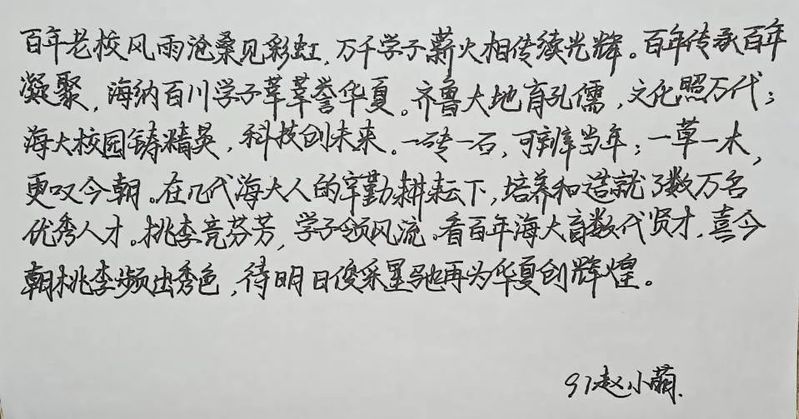 百年老校风雨沧桑见彩虹，万千学子薪火相传续光辉。百年传承百年
凝聚，海纳百川学子莘莘誉华夏。齐鲁大地育孔儒，文化照万代；
海大校园铸精英，科技创未来。一砖一石，可辨当年；一草一木，
更叹今朝。在几代海大人的辛勤耕耘下，培养和造就了数万名
优秀人才。桃李竞芬芳，学子领风流。看百年海大育数代贤才，喜今
朝桃李频出秀色，待明日俊采星驰再为华夏创辉煌。
97赵小萌.